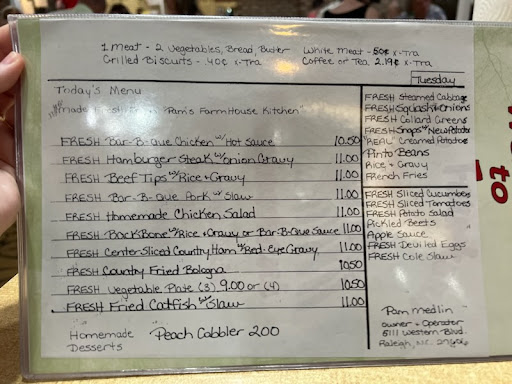 1 meat - 2 vegetables, Bread, Butter
Grilled Biscuits - .40¢ x-tra
White meat - 50¢ x-tra
Coffee or Tea 2.19¢ x-tra
Tuesday
Today's Menu
made Fresh "Pam's FarmHouse Kitchen"
FRESH Bar-B-Que Chicken w/ Hot Sauce 10.50
FRESH Hamburger Steak w/ Onion Gravy 11.00
FRESH Beef Tips w/ Rice + Gravy 11.00
FRESH Bar-B-Que Pork w/ Slaw 11.00
FRESH Homemade Chicken Salad 11.00
FRESH BackBone w/ Rice + Gravy or Bar-B-Que Sauce 11.00
FRESH Center Sliced Country Ham w/ Red-Eye Gravy 11.00
FRESH Country Fried Bologna 10.50
FRESH Vegetable Plate (3) 9.00 or (4) 10.50
FRESH Fried Catfish w/ Slaw 11.00
Homemade
Desserts
Peach Cobbler 200
FRESH Steamed Cabbage
FRESH Squash + Onions
FRESH Collard Greens
FRESH Snaps w/ New Potatoes
"REAL" Creamed Potatoes
Pinto Beans
Rice + Gravy
French Fries
FRESH Sliced Cucumbers
FRESH Sliced Tomatoes
FRESH Potato Salad
Pickled Beets
Apple Sauce
FRESH Deviled Eggs
FRESH Cole Slaw
Pam Medlin
owner + operator
5111 Western Blvd.
Raleigh, NC. 27606
to